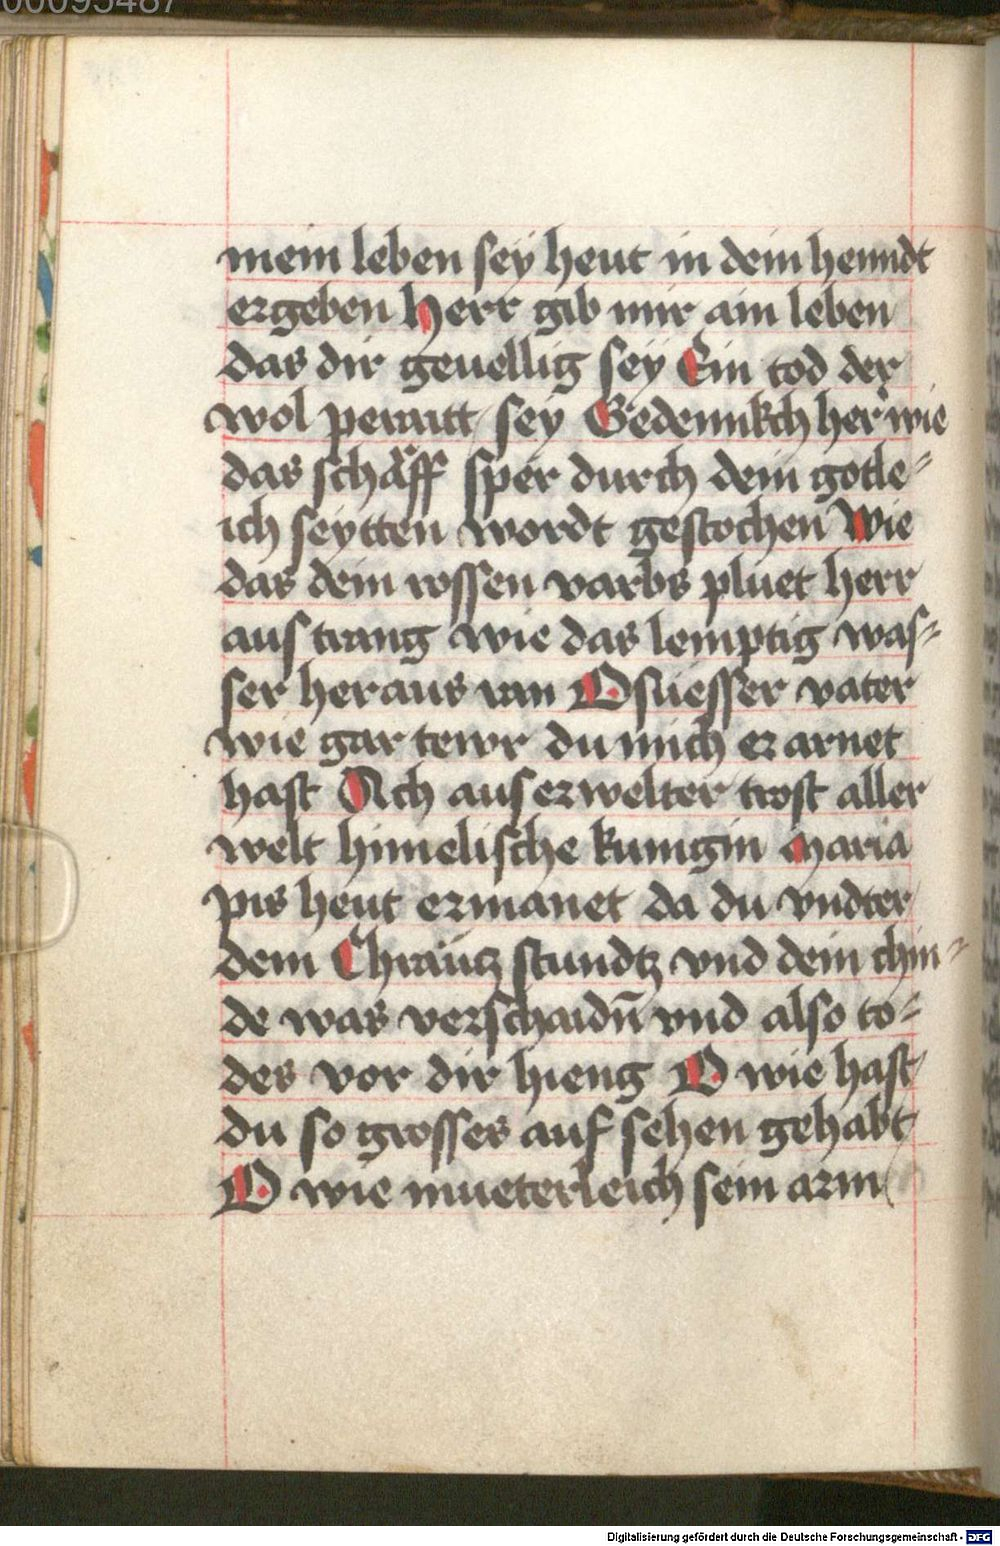 00095487
mein leben sey heut in dein henndt
ergeben Herr gib mir ain leben
das dir geuellig sey Ein tod der
wol peraitt sey Gedennkch her wie
das schäff sper durch dein gotle⸗
ich seytten wordt gestochen Wie
das dein rossen varbs pluet herr
aus trang wie das lemptig was⸗
ser heraus ran O süesser vater
wie gar tewr du mich erarnet
hast Ach auserwelter trost aller
welt himelische kunigin Maria
pis heut ermanet da du vndter
dem Chräutz stundtz vnd dein chin⸗
de was verschaidn̄ vnd also to⸗
des vor dir hieng O wie hast
du so grosses auf sehen gehabt
O wie mueterleich sein arm
Digitalisierung gefördert durch die Deutsche Forschungsgemeinschaft - DFG